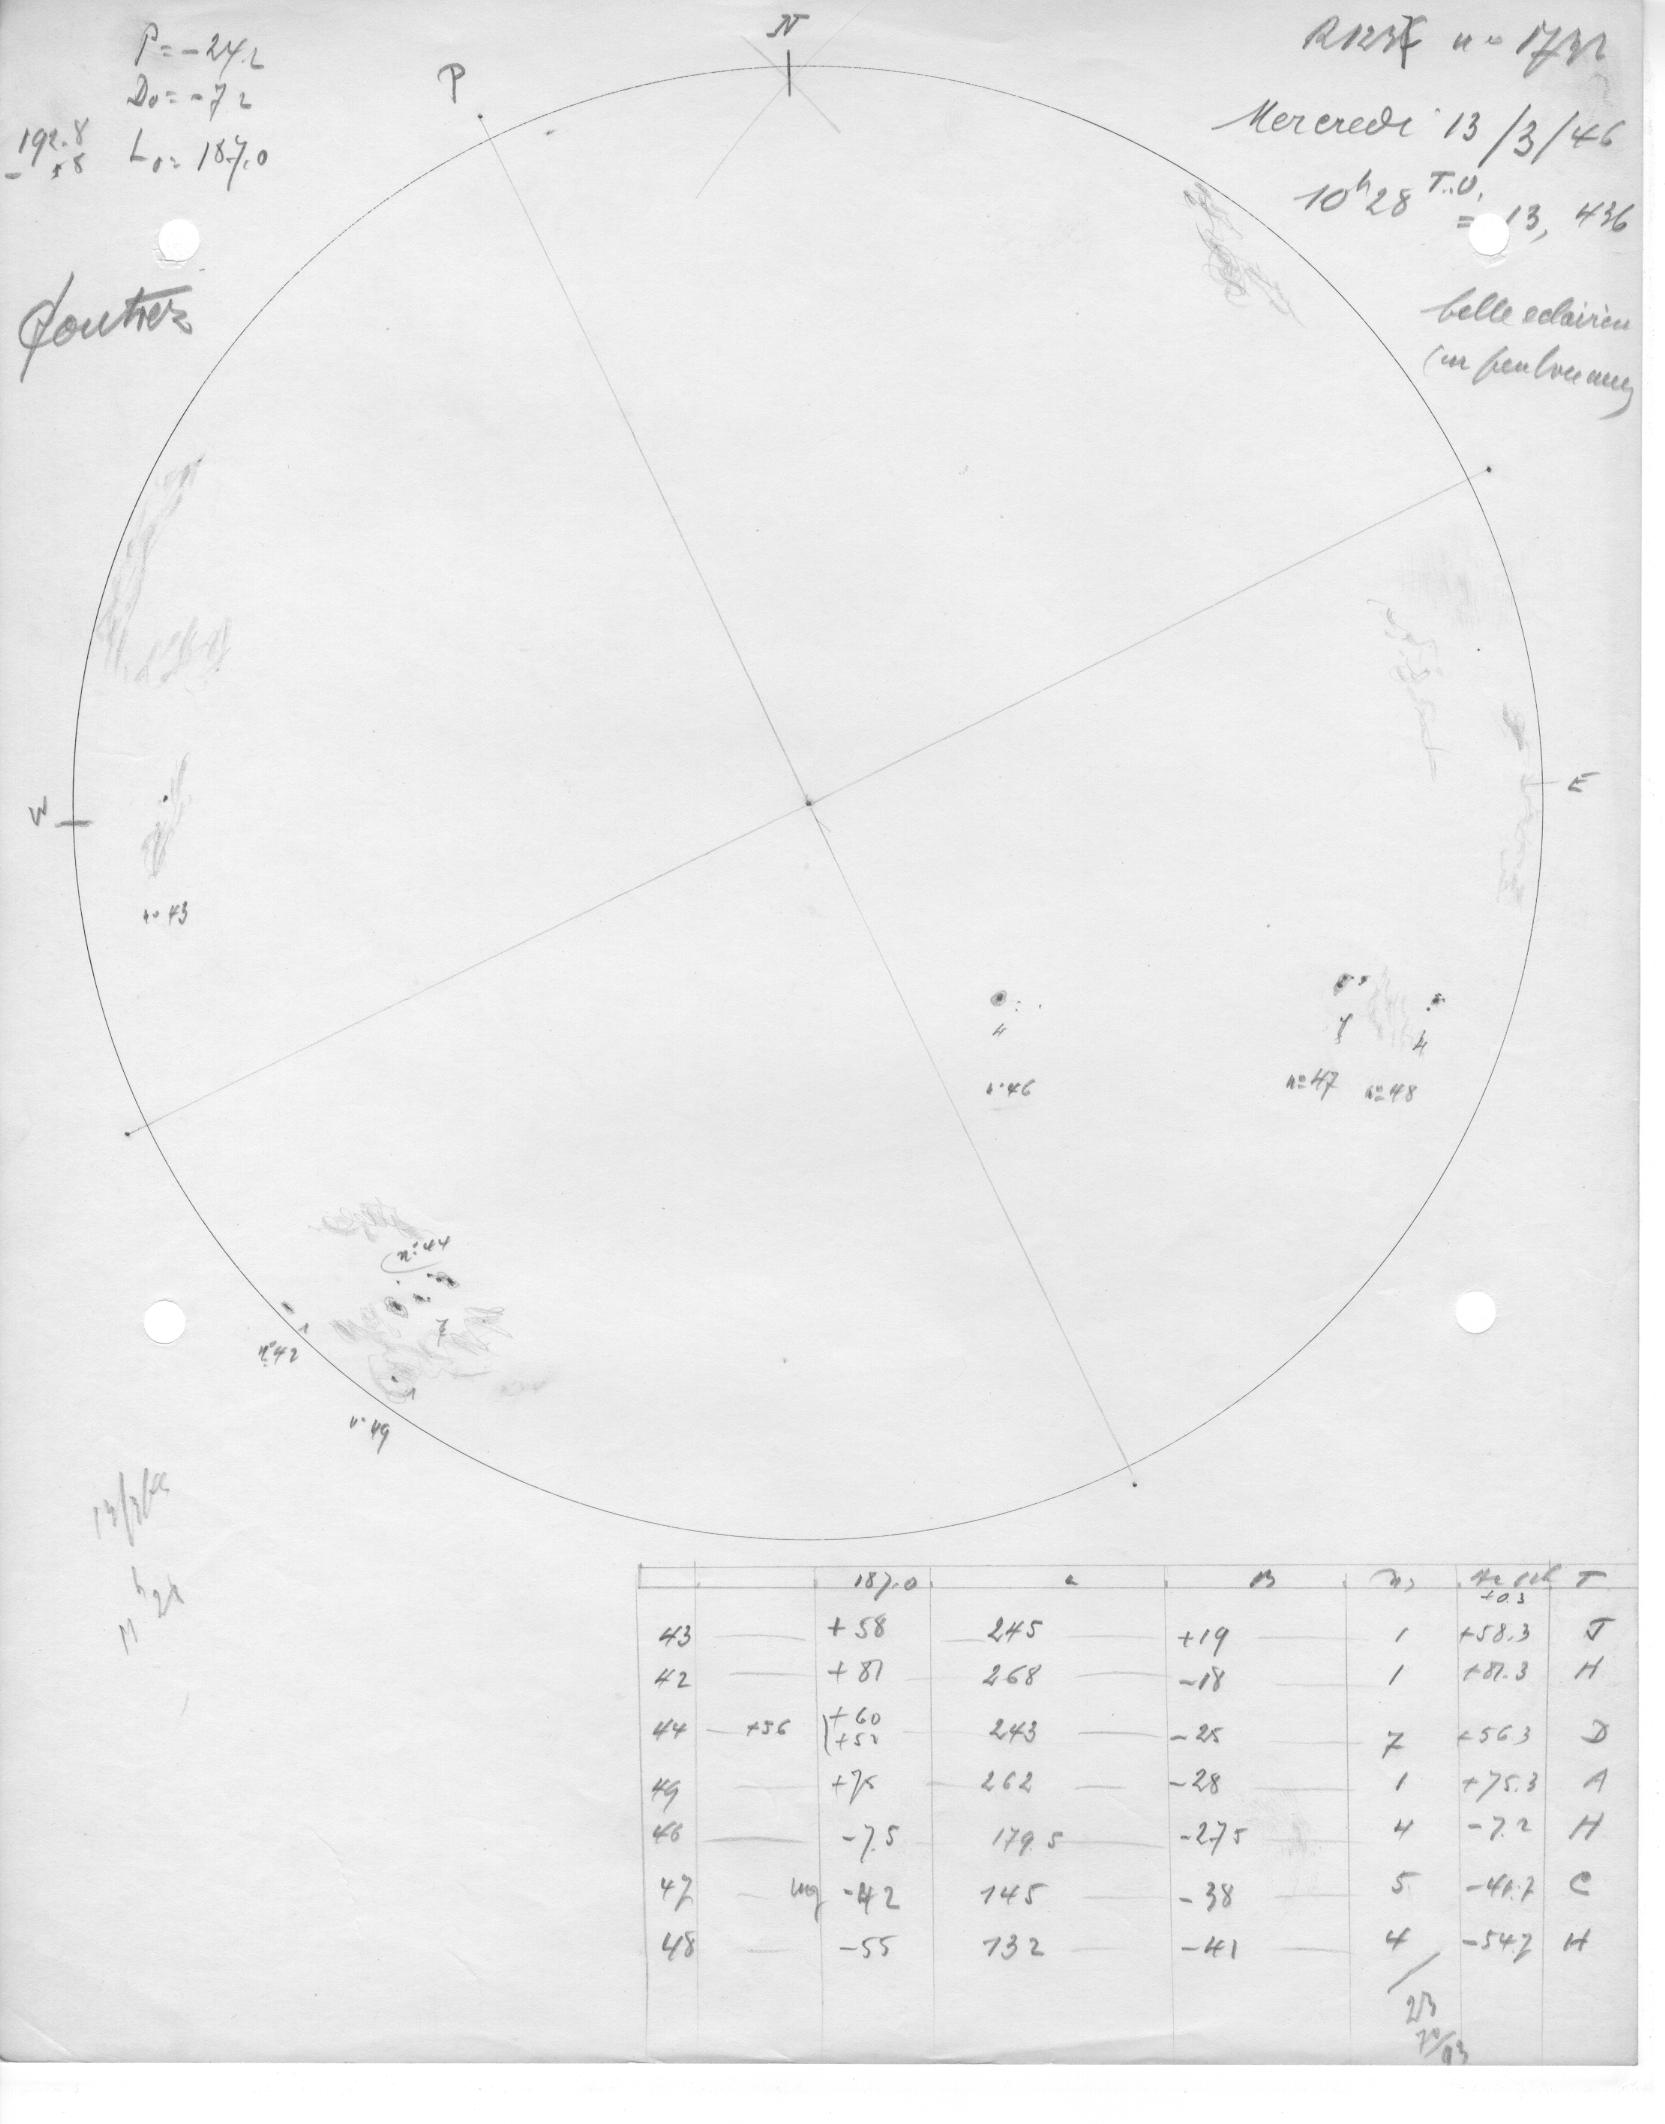 P = -24.2
D₀ = -7.2
192.8
- 5.8
L₀ = 187.0
N
P
n° 1732
Mercredi 13/3/46
10h28 T.U.
= 13, 436
belle eclaircie
W
E
n° 43
4
n° 46
7
n° 47
4
n° 48
n° 44
7
1
n° 42
1
n° 49
13/3/46
187.0 L B T
+0.3
43 +58 245 +19 1 +58.3 J
42 +81 268 -18 1 +81.3 H
44 +56 +60 +52 243 -25 7 +56.3 D
49 +75 262 -28 1 +75.3 A
46 -7.5 179.5 -27.5 4 -7.2 H
47 -42 145 -38 5 -41.7 C
48 -55 132 -41 4 -54.7 H
23
70/93